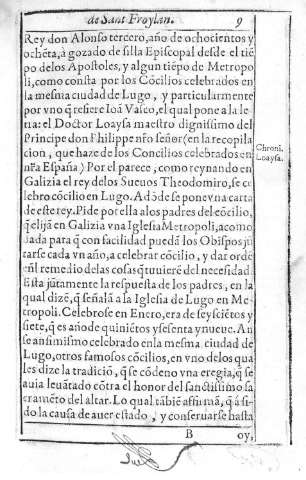 de Sant Froylan. 9
Rey don Alonso tercero, año de ochocientos y
ochẽta, à gozado de silla Episcopal desde el tiẽ
po delos Apostoles, y algun tiẽpo de Metropo
li, como consta por los Cõcilios celebrados en
la mesma ciudad de Lugo, y particularmente
por vno q̃ refiere Ioã Vaseo, el qual pone a la le
tra: el Doctor Loaysa maestro dignissimo del
Principe don Philippe nr̃o señor (en la recopila
cion, que haze de los Concilios celebrados en
nr̃a España.) Por el parece, como reynando en
Galizia el rey delos Sueuos Theodomiro, se ce
lebro cõcilio en Lugo. Adõde se pone vna carta
de este rey. Pide por ella alos padres del cõcilio,
q̃ elijã en Galizia vna Iglesia Metropoli, acomo
dada para q̃ con facilidad puedã los Obispos jũ
tarse cada vn año, a celebrar cõcilio, y dar ordẽ
enl remedio delas cosas q̃ tuuierẽ del necesidad
Esta jũtamente la respuesta de los padres, en la
qual dizẽ, q̃ señalã a la Iglesia de Lugo en Me-
tropoli. Celebrose en Enero, era de seyscietos y
siete, q̃ es año de quiniẽtos y sesenta y nueue. An
se ansimismo celebrado en la mesma ciudad de
Lugo, otros famosos cõcilios, en vno delos qua
les dize la tradiciõ, q̃ se cõdeno vna eregia, q̃ se
auia leuãtado cõtra el honor del sanctissimo sa
cramẽto del altar. Lo qual tãbiẽ affirmã, q̃ à si-
do la causa de auer estado, y conseruarse hasta
Chroni.
Loaysa.
B oy,